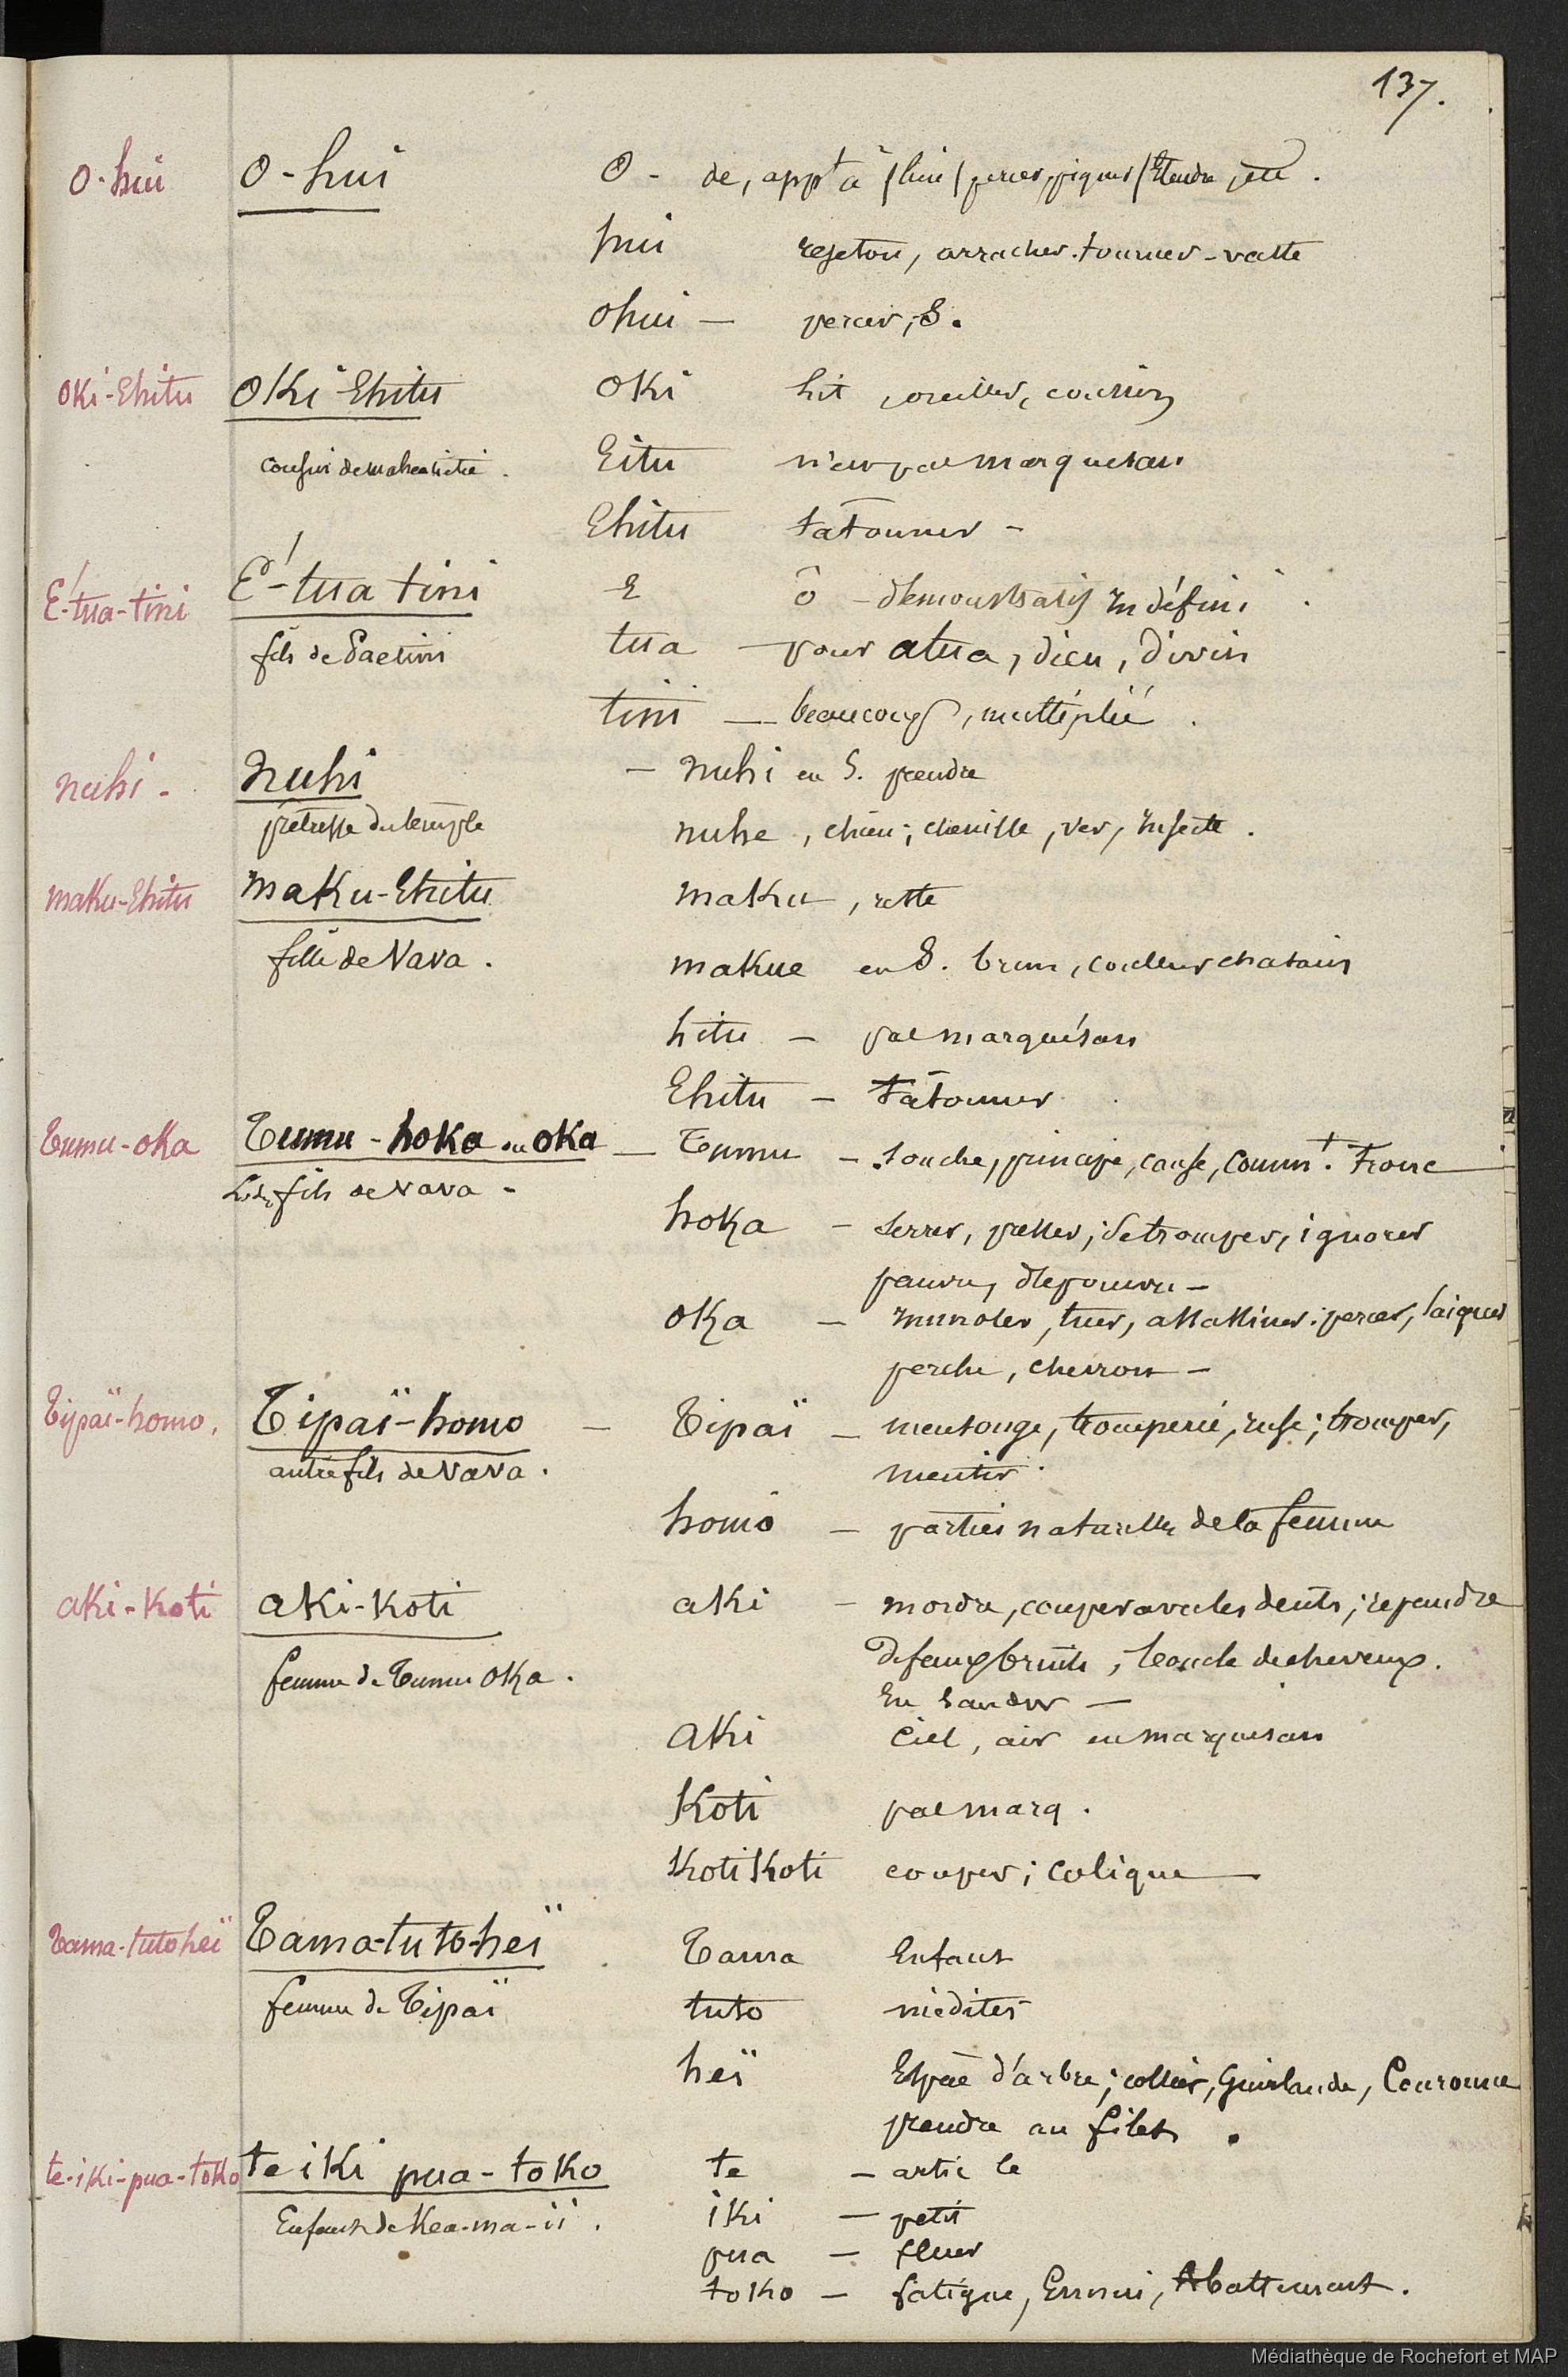 137.
O-hui O-hui O - de, appt à / hui / percer, piquer / Etendre, jeté.
hui rejeton, arracher. tourner - vaste
Ohui — percer, S.
Oki-Ehitu Oki Ehitu Oki lit, oreiller, coussin
Eitu n'est pas marquesan
Ehitu tatonner -
É-tua-tini É-tua tini E ô - démonstratif indéfini.
fils de Paetini tua — pour atua, dieu, divin
tini — beaucoup, multiplié.
nuhi - nuhi — nuhi en S. prendre
prêtresse du temple nuhe, chien; chenille, ver, insecte.
maku-Ehitu maku-Ehitu maku, reste
fille de Vava. makue en S. brun, couleur chatain
hitu — pas marquésan
Ehitu — tâtonner
Tumu-oka Tumu-hoka ou oka — Tumu — souche, principe, cause, commt. Tronc
fils de Vava - hoka — serrer, presser; se tromper, ignorer
pauvre, dépourvu —
oka — immoler, tuer, assassiner. percer, saigner
perche, chevron —
Tipaï-homo, Tipaï-homo — Tipaï — mensonge, tromperie, ruse; tromper,
autre fils de Vava. mentir.
homo — parties naturelles de la femme
aki-koti aki-koti aki — mordre, couper avec les dents; répandre
de faux bruits, boucle de cheveux.
femme de Tumu Oka.
aki Ciel, air en marquesan
Koti pas marq.
KotiKoti couper; Colique —
Tama-tutoheï Tama-tuto-heï Tama Enfant
femme de Tipaï tuto méditer
heï Espèce d'arbre; collier, Guirlande, Couronne
prendre au filet.
te-iki-pua-toko te iki pua-toko te — artic le
Enfant de Kea-ma-ii. iki — petit
pua — fleur
toko — fatigue, Ennui, Abattement.
Médiathèque de Rochefort et MAP